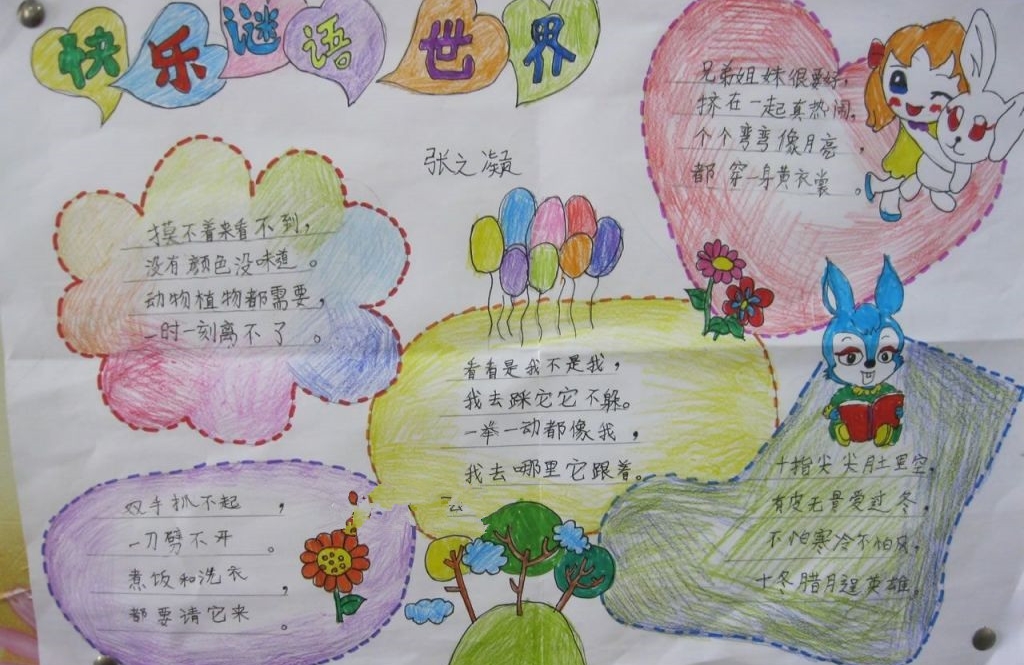 快乐谜语世界
张之凝
兄弟姐妹很要好,
挤在一起真热闹。
个个弯弯像月亮,
都穿一身黄衣裳。
摸不着来看不到,
没有颜色没味道。
动物植物都需要,
一时一刻离不了。
看看是我不是我,
我去踩它它不躲。
一举一动都像我,
我去哪里它跟着。
双手抓不起,
一刀劈不开。
煮饭和洗衣,
都要请它来。
十指尖尖肚里空,
有皮无骨爱过冬,
不怕寒冷不怕风,
十冬腊月逞英雄。